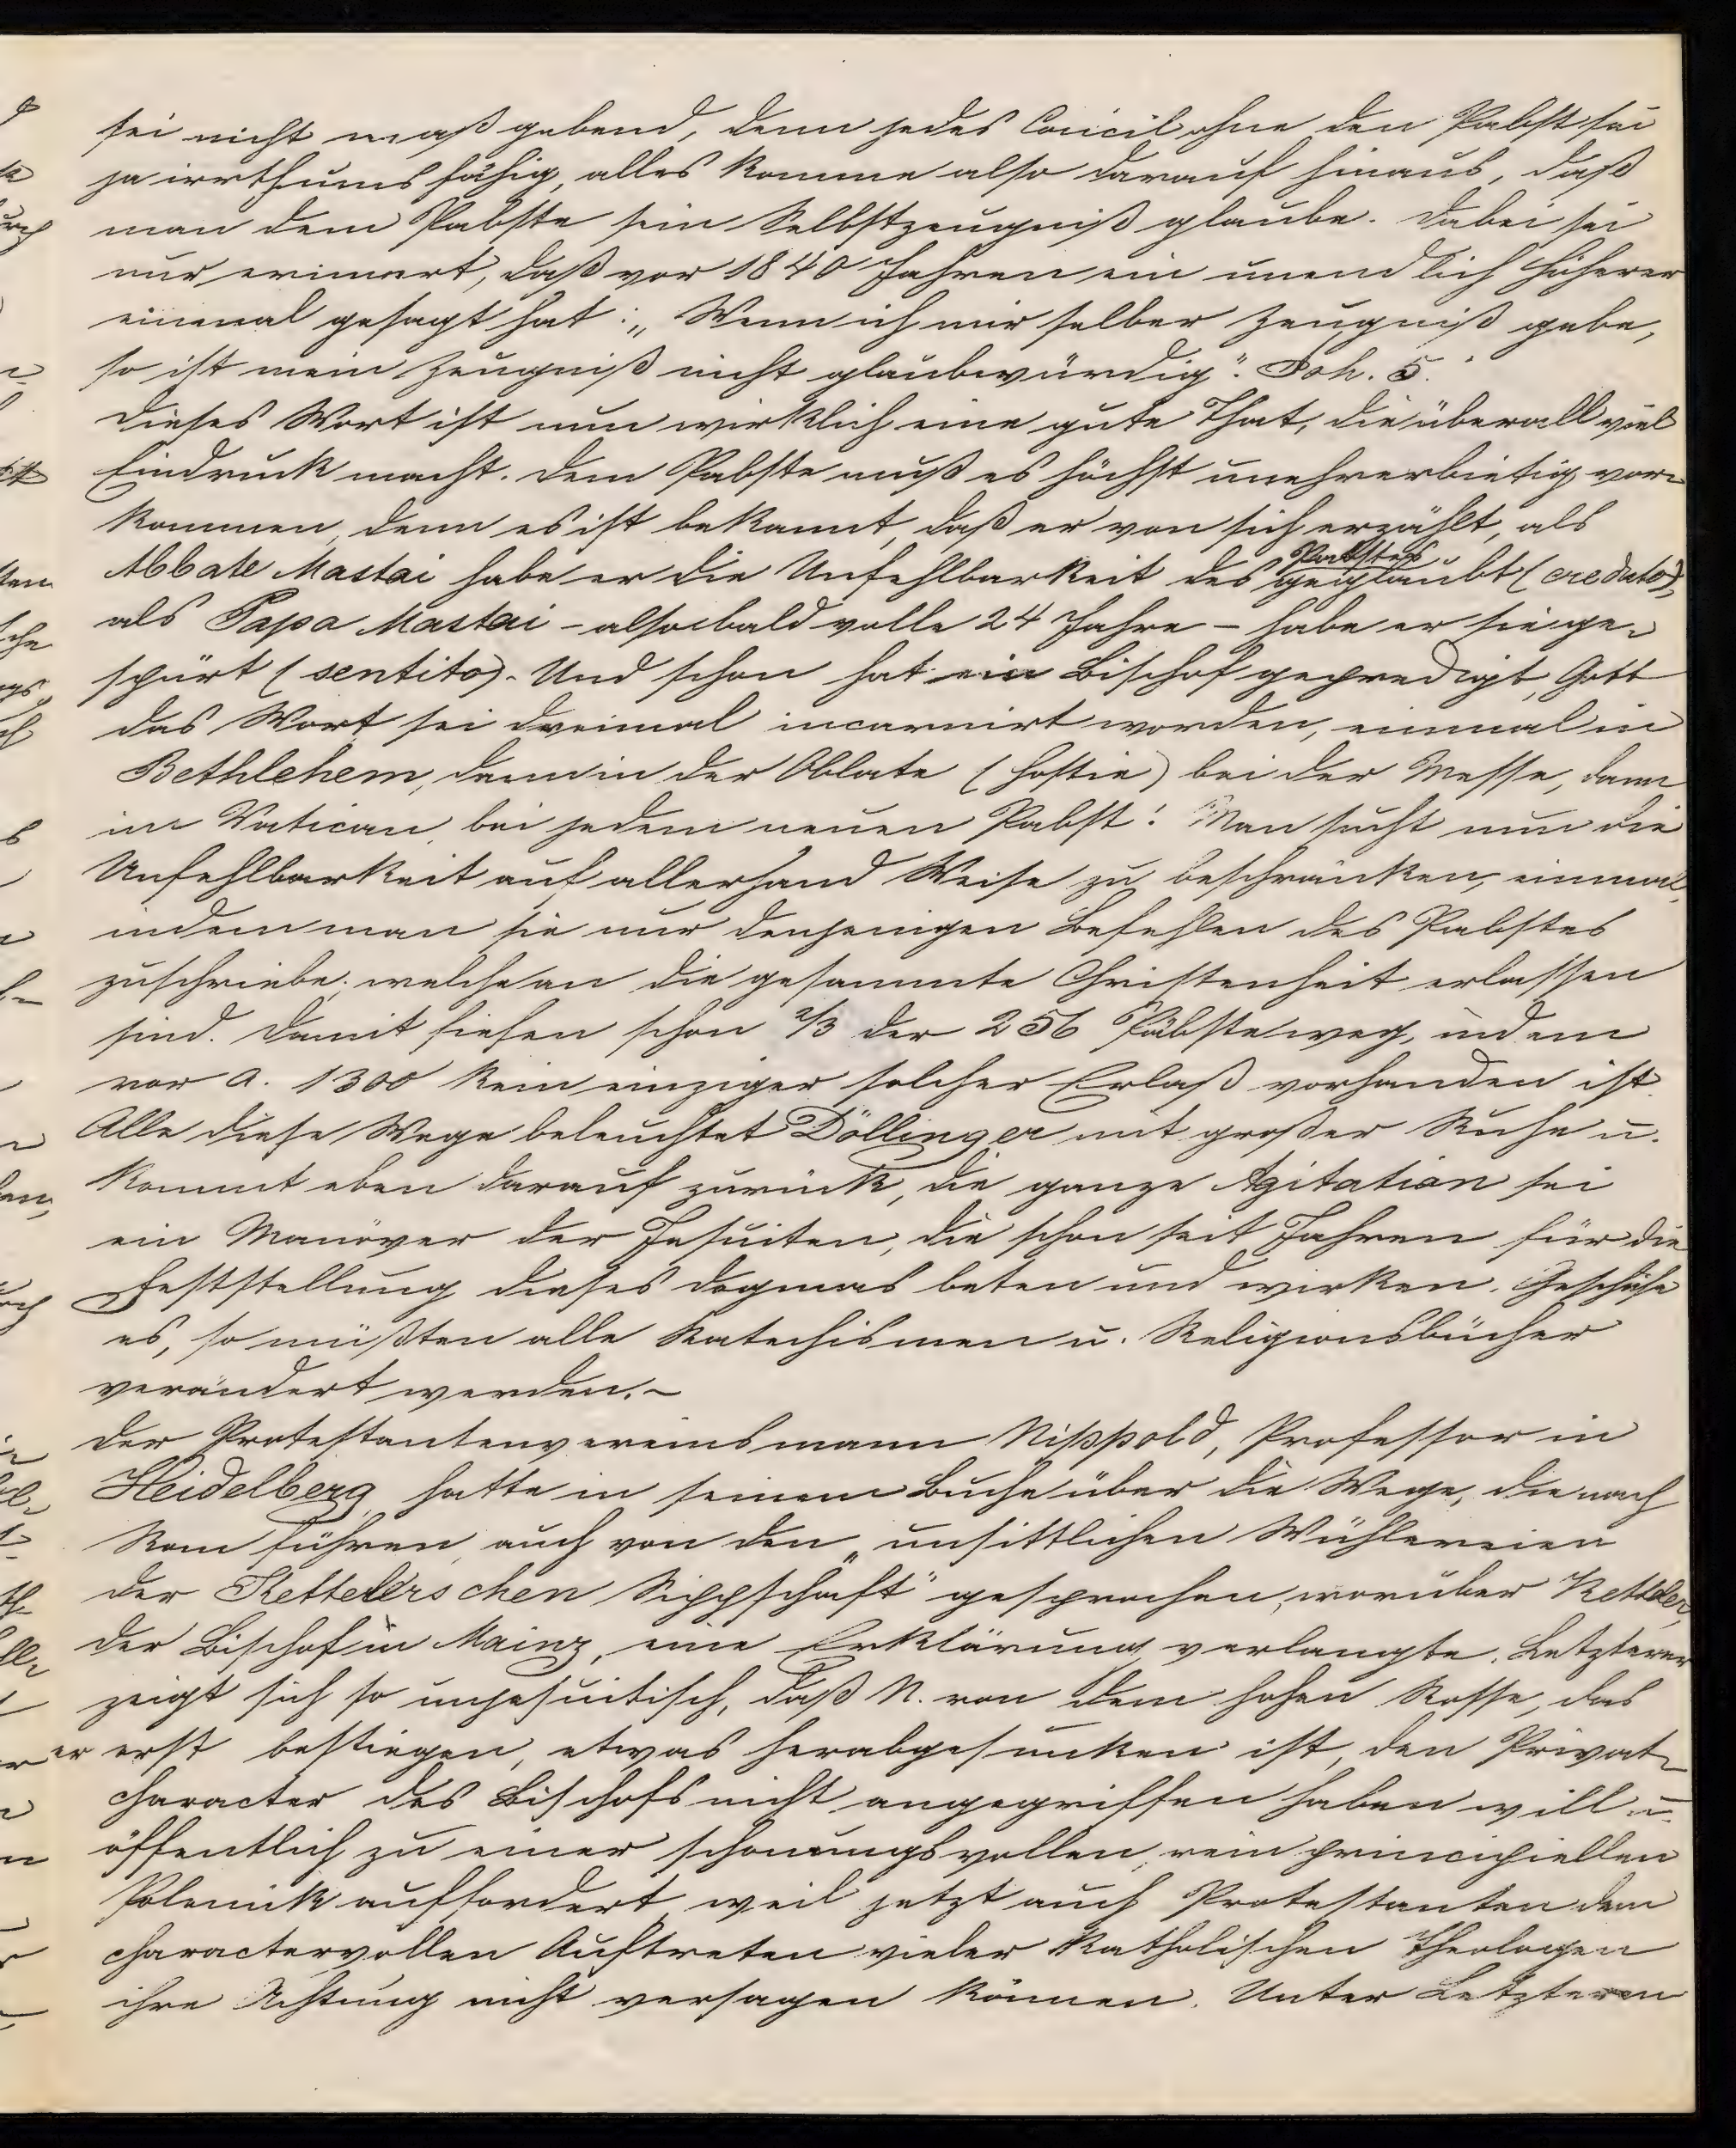 sei nicht maßgebend, denn jedes Concil ohne den Pabst sei
ja irrthumsfähig, alles komme also darauf hinaus, daß
man dem Pabste sein Selbstzeugniß glaube. Dabei sei
nur erinnert, daß vor 1840 Jahren ein unendlich Höherer
einmal gesagt hat: „Wenn ich mir selber Zeugniß gebe,
so ist mein Zeugniß nicht glaubwürdig“. Joh. 5.
Dieses Wort ist nun wirklich eine gute That, die überall viel
Eindruck macht. Dem Pabste muß es höchst unehrerbietig vor-
kommen, denn es ist bekannt, daß er von sich erzählt, als
Abbate Mastai habe er die Unfehlbarkeit des Pabstes geglaubt (creduto),
als Papa Mastai - also bald volle 24 Jahre - habe er sie ge-
spürt (sentito). Und schon hat ein Bischof gepredigt, Gott
das Wort sei dreimal incarnirt worden, einmal in
Bethlehem, dann in der Oblate (Hostie) bei der Messe, dann
im Vatican bei jedem neuen Pabst! Man sucht nun die
Unfehlbarkeit auf allerhand Weise zu beschränken, einmal,
indem man sie nur denjenigen Befehlen des Pabstes
zuschriebe, welche an die gesammte Christenheit erlassen
sind. Damit fielen schon 2/3 der 256 Päbste weg, indem
vor a. 1300 kein einziger solcher Erlaß vorhanden ist.
Alle diese Wege beleuchtet Döllinger mit großer Ruhe u.
kommt eben darauf zurück, die ganze Agitation sei
ein Manöver der Jesuiten, die schon seit Jahren für die
Feststellung dieses Dogmas beten und wirken. Geschähe
es, so müßten alle Katechismen u. Religionsbücher
verändert werden. -
Der Protestantenvereinsmann Nippold, Professor in
Heidelberg hatte in seinem Buche über die Wege, die nach
Rom führen, auch von den „unsittlichen Wühlereien
der Kettelerschen Sippschaft“ gesprochen, worüber Ketteler,
der Bischof in Mainz, eine Erklärung verlangte. Letzterer
zeigt sich so unjesuitisch, daß N. von dem hohen Rosse, das
er erst bestiegen, etwas herabgesunken ist, den Privat-
character des Bischofs nicht angegriffen haben will u.
öffentlich zu einer schonungsvollen, rein principiellen
Polemik auffordert, weil jetzt auch Protestanten dem
charactervollen Auftreten vieler katholischen Theologen
ihre Achtung nicht versagen können. Unter Letzteren